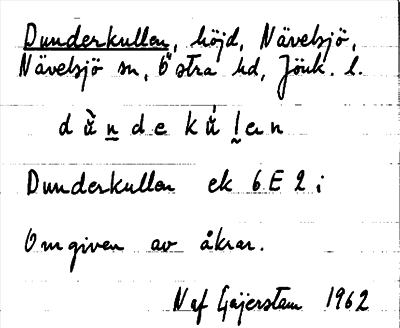 Dunderkullen, höjd, Nävelsjö,
Nävelsjö sn, Östra hd, Jönk. l.
dùndekúlen
Dunderkullen ek 6E2i
Omgiven av åkrar.
N af Geijerstam 1962